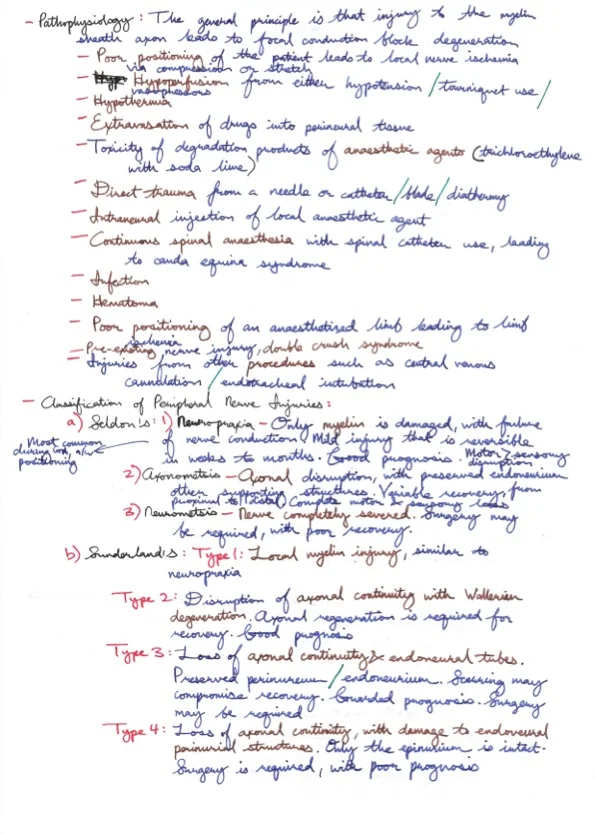 - Pathophysiology: The general principle is that injury to the myelin
sheath axon leads to focal conduction block degeneration
- Poor positioning of the patient leads to local nerve ischemia
via compression or stretch
- Hypoperfusion from either hypotension/tourniquet use/
vasopressors
- Hypothermia
- Extravasation of drugs into perineural tissue
- Toxicity of degradation products of anaesthetic agents (trichloroethylene
with soda lime)
- Direct trauma from a needle or catheter/blade/diathermy
- Intraneural injection of local anaesthetic agent
- Continuous spinal anaesthesia with spinal catheter use, leading
to cauda equina syndrome
- Infection
- Hematoma
- Poor positioning of an anaesthetised limb leading to limb
ischemia
- Pre-existing nerve injury, double crush syndrome
- Injuries from other procedures such as central venous
cannulation/endotracheal intubation
- Classification of Peripheral Nerve Injuries:
a) Seldon's: 1) Neuropraxia - Only myelin is damaged, with failure
of nerve conduction. Mild injury that is reversible
in weeks to months. Good prognosis. Motor > sensory
disruption
Most common
during positioning
2) Axonometsis - Axonal disruption, with preserved endoneurium
other supporting structures. Variable recovery, from
proximal to distal. Complete motor & sensory loss
3) Neurometsis - Nerve completely severed. Surgery may
be required, with poor recovery.
b) Sunderland's: Type 1: Local myelin injury, similar to
neuropraxia
Type 2: Disruption of axonal continuity with Wallerian
degeneration. Axonal regeneration is required for
recovery. Good prognosis
Type 3: Loss of axonal continuity & endoneural tubes.
Preserved perineureum/endoneurium. Scarring may
compromise recovery. Guarded prognosis. Surgery
may be required
Type 4: Loss of axonal continuity, with damage to endoneural
perineurial structures. Only the epineurium is intact.
Surgery is required, with poor prognosis